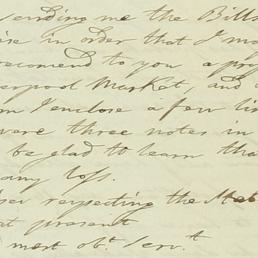 sending me the Bills
in order that I ma
recomend to you a
erpool Market, and
I enclose a few lin
were three notes in
be glad to learn tha
any loss.
respecting the
at present
most obt. Servt